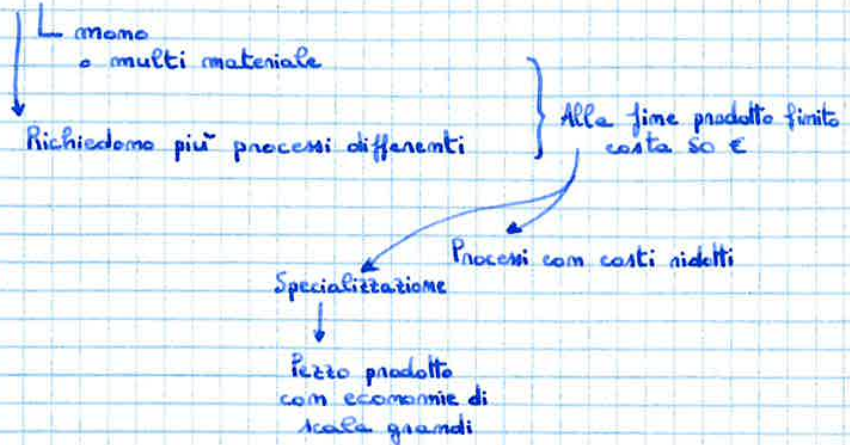 mono
o multi materiale
Richiedono più processi differenti
Alla fine prodotto finito
costa 50 €
Processi con costi ridotti
Specializzazione
Pezzo prodotto
con economie di
scala grandi